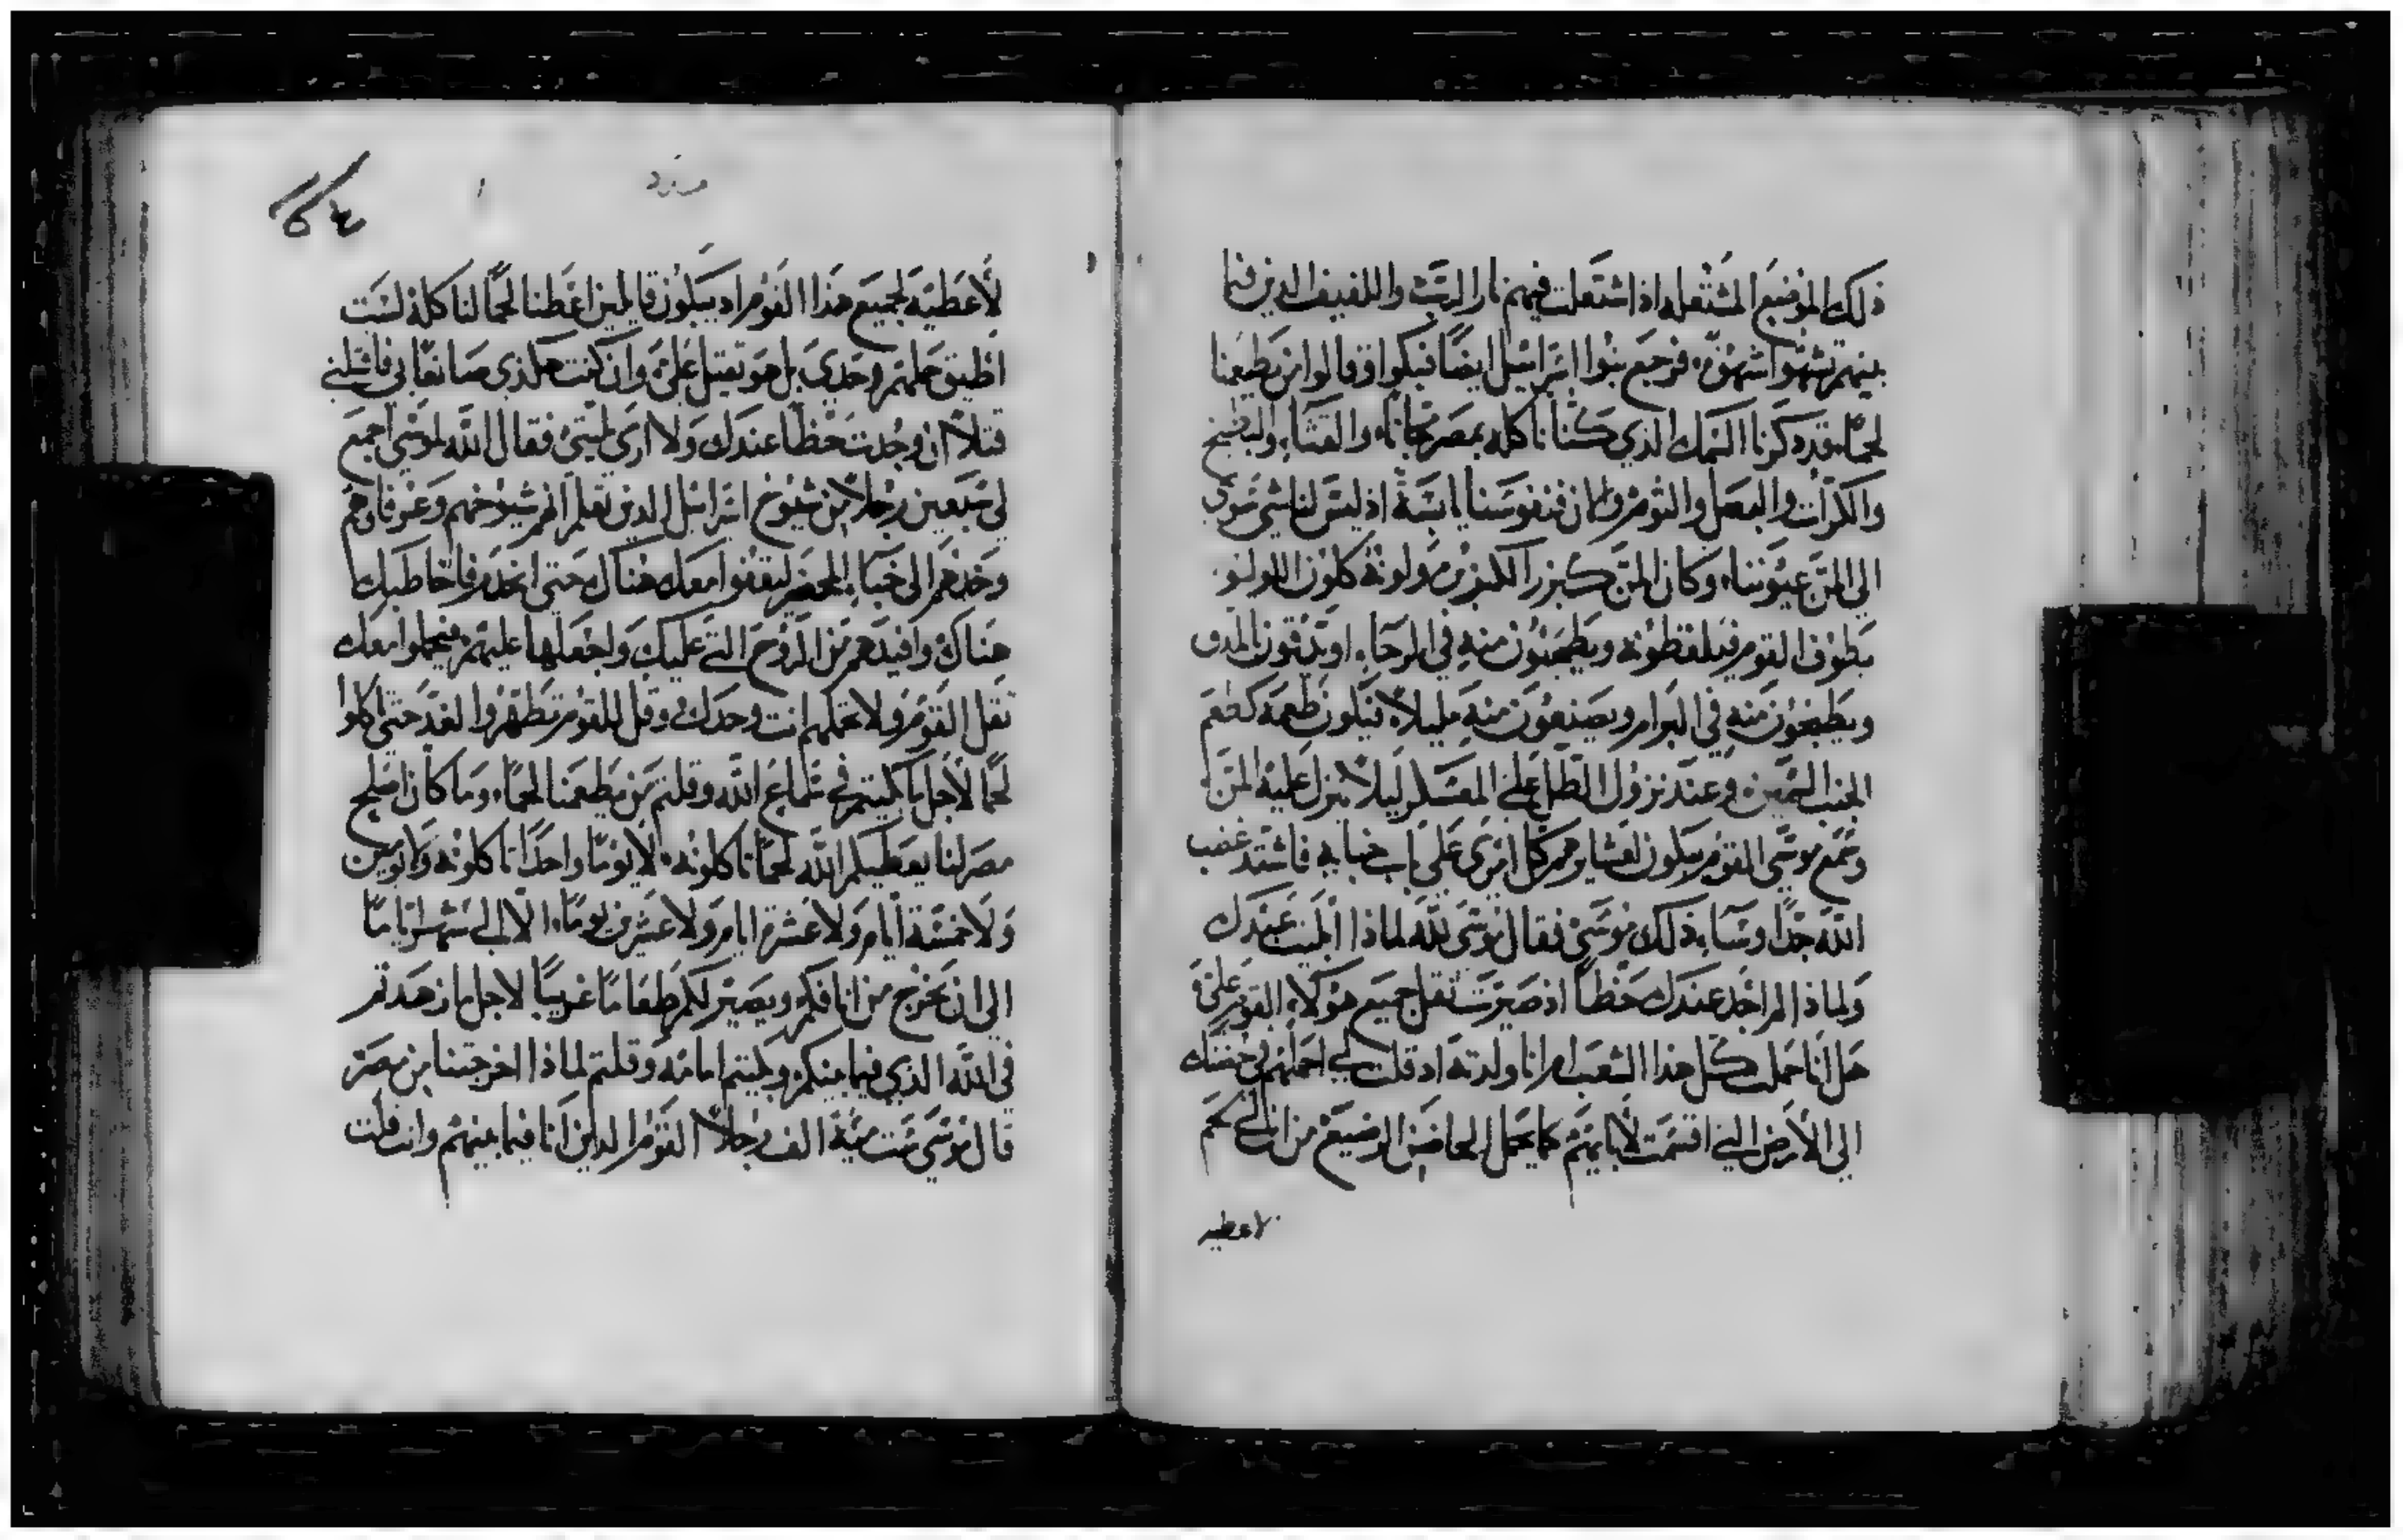 ذلك الموضع المشتعله اذا اشتعلت فيهم نار الرب واللفيف الدين فيما
بينهم تشهوا شهوة فرجع بنوا اسراييل ايضا فبكوا وقالوا من يطعمنا
لحما فقد ذكرنا السمك الذي كنا ناكله بمصر مجانا والقثاء والبطيخ
والكراث والبصل والثوم والان فنفوسنا يابسة اذ ليس لنا شي سوي
الي المن عيوننا وكان المن كبزر الكزبره ولونه كلون اللولو
يطوف القوم فيلقطونه ويطحنون منه في الرحاء او يدقون بالمدق
ويطبخون منه في البرام ويصنعون منه مليلا فيكون طعمه كطعم
الخبز السمين وعند نزول الطل علي المعسكر ليلا ينزل عليه المن
وسمع موسي القوم يبكون لعشايرهم كل امري علي باب خبايه فاشتد غضب
الله جدا وساء ذلك موسي فقال موسي لله لماذا ابليت عبدك
ولماذا لم اجد عندك حظا اذ صيرت ثقل جميع هولاء القوم علي
هل انا حملت كل هذا الشعب ام انا ولدته اد قلت لي احملهم في حضنك
الي الارض التي اقسمت لابايهم كما يحمل الحاضن الرضيع من اين لي لحم
لاعطيه
لاعطيه لجميع هذا القوم اد يبكون قايلين اعطنا لحما لناكله لست
اطيق حملهم وحدي بل هو تقيل علي وان كنت هكذي صانعا بي فاقتلني
قتلا ان وجدت حظا عندك ولا اري بليتي فقال الله لموسي اجمع
لي سبعين رجلا من شيوخ اسرائيل الدين تعلم انهم شيوخهم وعرفاوهم
وخدهم الي خباء المحضر ليقفوا معك هناك حتي اتحدر فاخاطبك
هناك وافيدهم من الروح التي عليك واجعلها عليهم فيحملوا معك
ثقل القوم ولا تحملهم انت وحدك وقل للقوم تطهروا لغد حتي تاكلوا
لحما لاجل بكيتم في سماع الله وقلتم من يطعمنا لحما وما كان اصلح
مصر لنا يعطيكم الله لحما تاكلونه لا يوما واحدا تاكلونه ولا يومين
ولا خمسة ايام ولا عشرة ايام ولا عشرين يوما الا الي شهر تاما
الي ان يخرج من انافكم ويصير لكم طعاما غريبا لاجل ما زهدتم
في الله الذي فيما بينكم وبكيتم امامه وقلتم لماذا اخرجتنا من مصر
قال موسي ست مية الف رجلا القوم الدين انا فيما بينهم وانت قلت